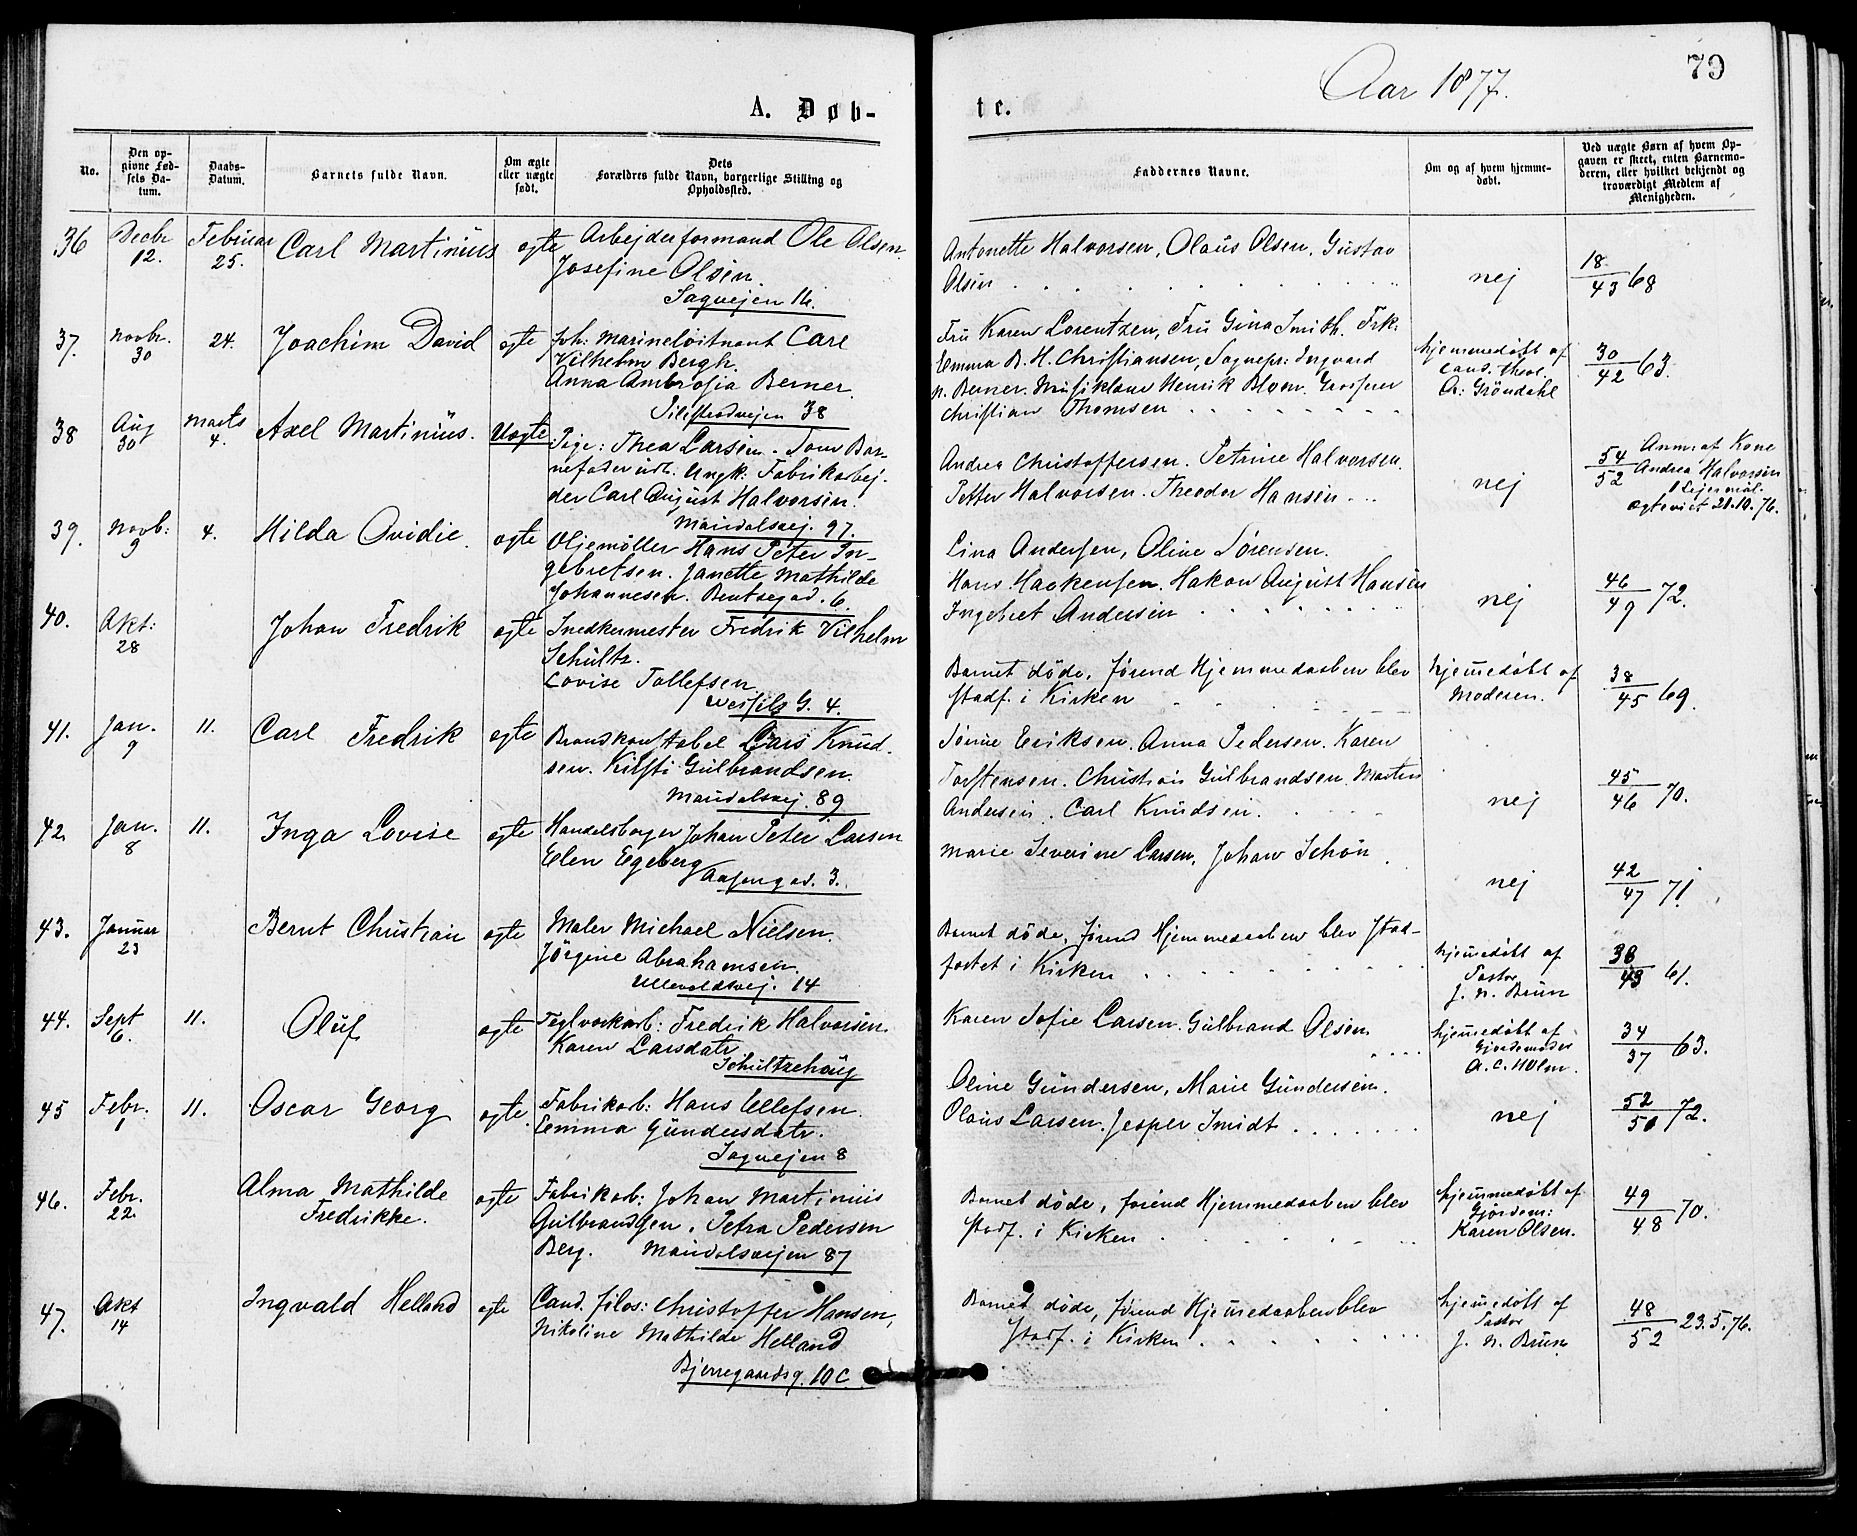 79
Aar 1877.
A. Døb-
te.
No.
Den op-
givne Fød-
sels Da-
tum.
Daabs-
Datum.
Barnets fulde Navn.
Om ægte
eller uægte
født.
Dets
Forældres fulde Navn, borgerlige Stilling og
Opholdssted.
Faddernes Navne.
Om og af hvem hjemme-
døbt.
Ved uægte Børn af hvem Op-
gaven er skeet, enten Barnemo-
deren, eller hvilket bekjendt og
troværdigt Medlem af
Menigheden.
36
Decbr
12.
Februar
25.
Carl Martinius
ægte
Arbejderformand Ole Olsen.
Josefine Olsen.
Sagvejen 16.
Antonette Halvorsen, Olaus Olsen, Gustav
Olsen
nej
18
43 68
37.
Novbr.
30
24.
Joachim David
ægte
Marineløitnant Carl
Vilhelm Bergh.
Anna Ambrosia Berner.
Pilestrædvejen 38
Fru Karen Lorentzen, Fru Gina Smith. Frk.
Emma B. H. Christiansen, Sognepr: Ingvard
N. Berner. Henrik Grosserer
Christian Thomsen
hjemmedøbt af
cand. theol.
A: Gröndahl
30
42 63.
38
Aug
30
Marts
4.
Axel Martinius.
Uægte
Pige: Thea Larsen. Som Bar-
nefader udl. Ungk. Fabrikarbej-
der Carl August Halvorsen.
Maridalsvej. 97.
Andrea Christoffersen. Petrine Halvorsen.
Petter Halvorsen. Theodor Hansen
nej
54
52
Anm. af Kone
Andrea Halvorsen
1 Lejermål.
ægteviet 21.10.76.
39.
Novb:
9
4.
Hilda Ovidie.
ægte
Oljemöller Hans Peter In-
gebretsen. Janette Mathilde
Johannesen. Bentsegad. 6.
Lina Andersen, Oline Sørensen.
Hans Haakensen. Hakon August Hansen
Ingebret Andersen
nej
46
49 72.
40.
Okt:
28
Johan Fredrik
ægte
Snedkermester Fredrik Vilhelm
Schultz.
Lovise Tollefsen
G. 4.
Barnet döde, förend Hjemmedaaben blev
stadf. i Kirken
hjemedøbt af
Moderen.
38
45 69.
41.
Jan.
9
11.
Carl Fredrik
ægte
Brandkonstabel Lars Knud-
sen. Kirsti Gulbrandsen.
Maridalsvej. 89
Eriksen. Anna Pedersen. Karen
Torstensen. Christian Gulbrandsen. Martin
Andersen. Carl Knudsen.
nej
45
46 70.
42.
Jan.
8
11.
Inga Lovise
ægte
Handelsborger Johan Peter Larsen
Elen Egeberg
Aasengad. 3.
Marie Severine Larsen. Johan Schön
nej
42
47 71.
43.
Januar
23
Bernt Christian
ægte
Maler Michael Nielsen.
Jörgine Abrahamsen.
Ullevoldsvej. 14
Barnet döde, förend Hjemmedaaben blev stad-
fæstet i Kirken
hjemedøbt af
Pastor
J. N. Brun
38
43 61.
44.
Sept
6.
11.
Oluf
ægte
Teglverkarb: Fredrik Halvorsen.
Karen Larsdatr.
Schultzehaug
Karen Sofie Larsen. Gulbrand Olsen
hjemedøbt af
Gjordemoder
A. C. Holm.
34
37 63.
45
Febr.
1
11.
Oscar Georg
ægte.
Fabrikarb: Hans Ellefsen.
Emma Gundersdatr.
Sagvejen 8
Oline Gundersen, Marie Gundersen.
Olaus Larsen. Jesper Smidt
nej
52
50 72.
46.
Febr.
22.
Alma Mathilde
Fredrikke.
ægte
Fabrikarb: Johan Martinius
Gulbrandsen. Petra Pedersen
Berg. Maridalsvejen 87
Barnet döde, förend Hjemmedaaben blev
stadf. i Kirken
hjemmedøbt af
Gjordem:
Karen Olsen.
49
48 70.
47.
Okt
14
Ingvald Helland
ægte
Cand. filos: Christoffer Hansen,
Nikoline Mathilde Helland
Bjerregaardsg. 10 C.
Barnet döde, förend Hjemedaaben blev
stadf. i Kirken
hjemedøbt af
Pastor
J. N. Brun
48
52 23.5.76.